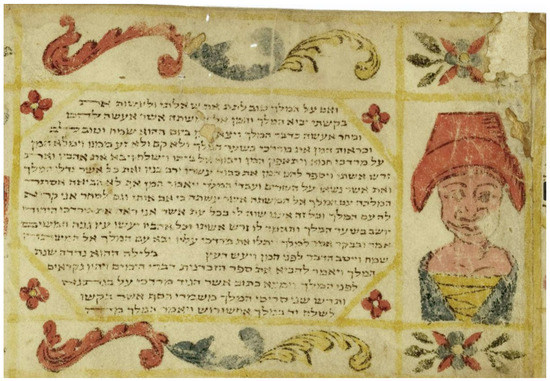 ואם על המלך טוב לתת את שאלתי ולעשות את
בקשתי יבוא המלך והמן אל המשתה אשר אעשה להם
ומחר אעשה כדבר המלך ויצא המן ביום ההוא שמח וטוב לב
וכראות המן את מרדכי בשער המלך ולא קם ולא זע ממנו וימלא המן
על מרדכי חמה ויתאפק המן ויבוא אל ביתו וישלח ויבא את אהביו ואת
זרש אשתו ויספר להם המן את כבוד עשרו ורב בניו ואת כל אשר גדלו המלך
ואת אשר נשאו על השרים ועבדי המלך ויאמר המן אף לא הביאה אסתר
המלכה עם המלך אל המשתה אשר עשתה כי אם אותי וגם למחר אני קרוא
לה עם המלך וכל זה איננו שוה לי בכל עת אשר אני ראה את מרדכי היהודי
יושב בשער המלך ותאמר לו זרש אשתו וכל אהביו יעשו עץ גבה חמשים
אמה ובבקר אמר למלך ויתלו את מרדכי עליו ובא עם המלך אל המשתה
שמח וייטב הדבר לפני המן ויעש העץ בלילה ההוא נדדה שנת
המלך ויאמר להביא את ספר הזכרנות דברי הימים ויהיו נקראים
לפני המלך וימצא כתוב אשר הגיד מרדכי על בגתנא
ותרש שני סריסי המלך משמרי הסף אשר בקשו
לשלח יד במלך אחשורוש ויאמר המלך מה